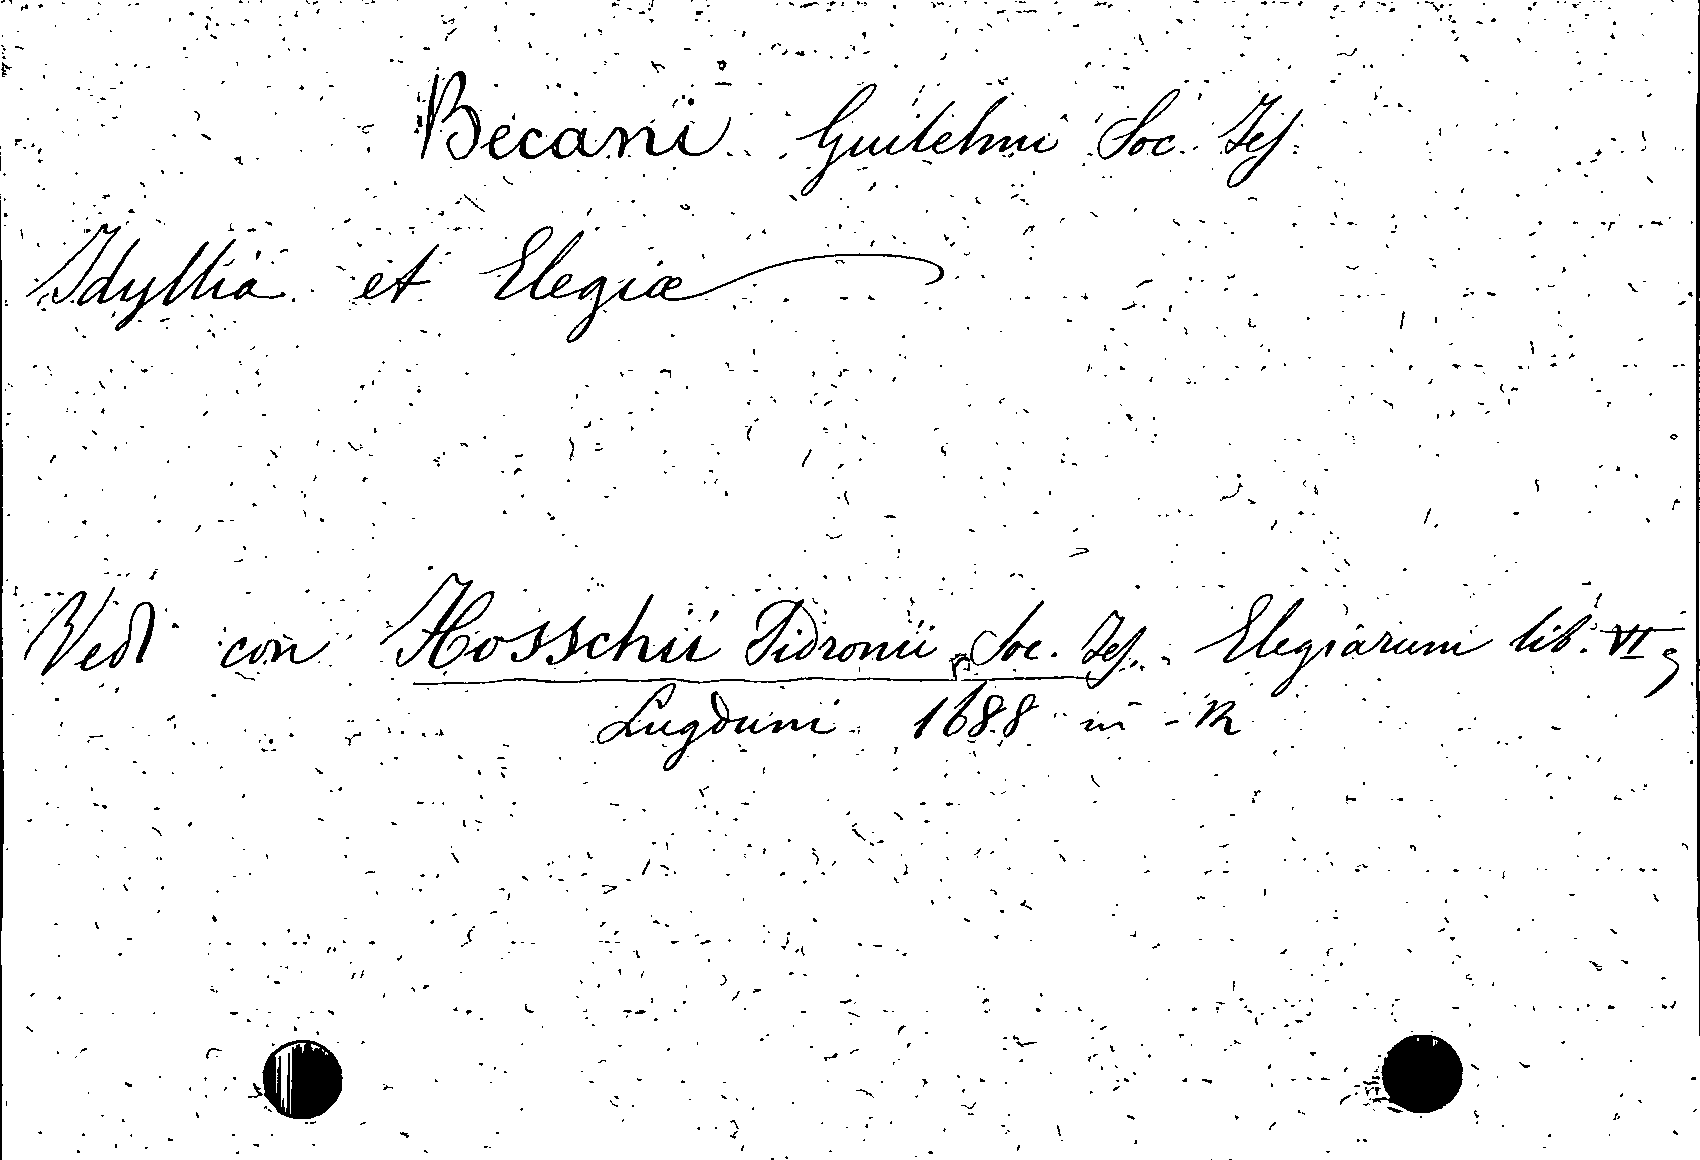 Becani Guilelmi Soc. Jes.
Idyllia et Elegiæ
Vedi con Hosschii Sidronii Soc. Jes. Elegiarum lib. VI
Lugduni 1688 in-12